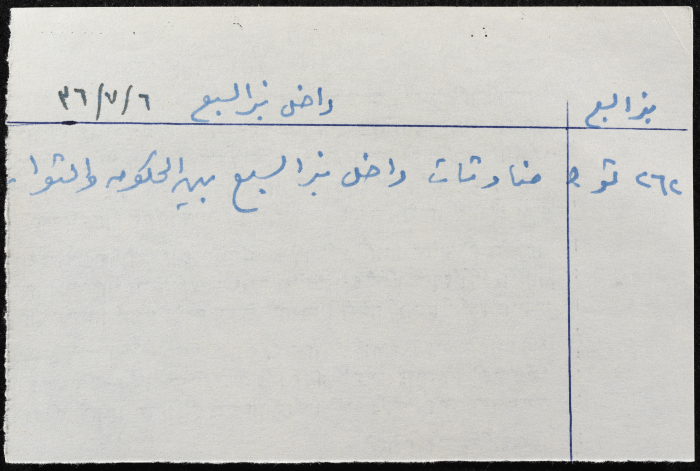 بئر السبع داخل بئر السبع ٣٦/٧/٦
٢٦٢ ثورة مناوشات داخل بئر السبع بين الحكومه والثوار